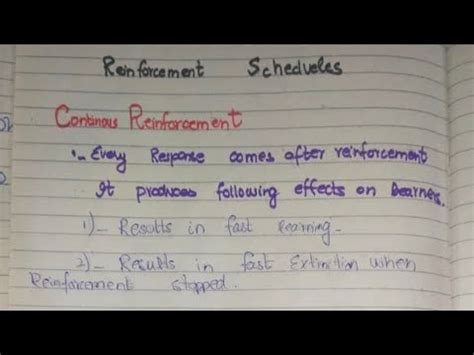 Reinforcement Schedueles
Continous Reinforcement
Every Response comes after reinforcement
It produces following effects on Learner.
1)- Results in fast learning-
2)- Results in fast Extinition when
Reinforcement stopped.